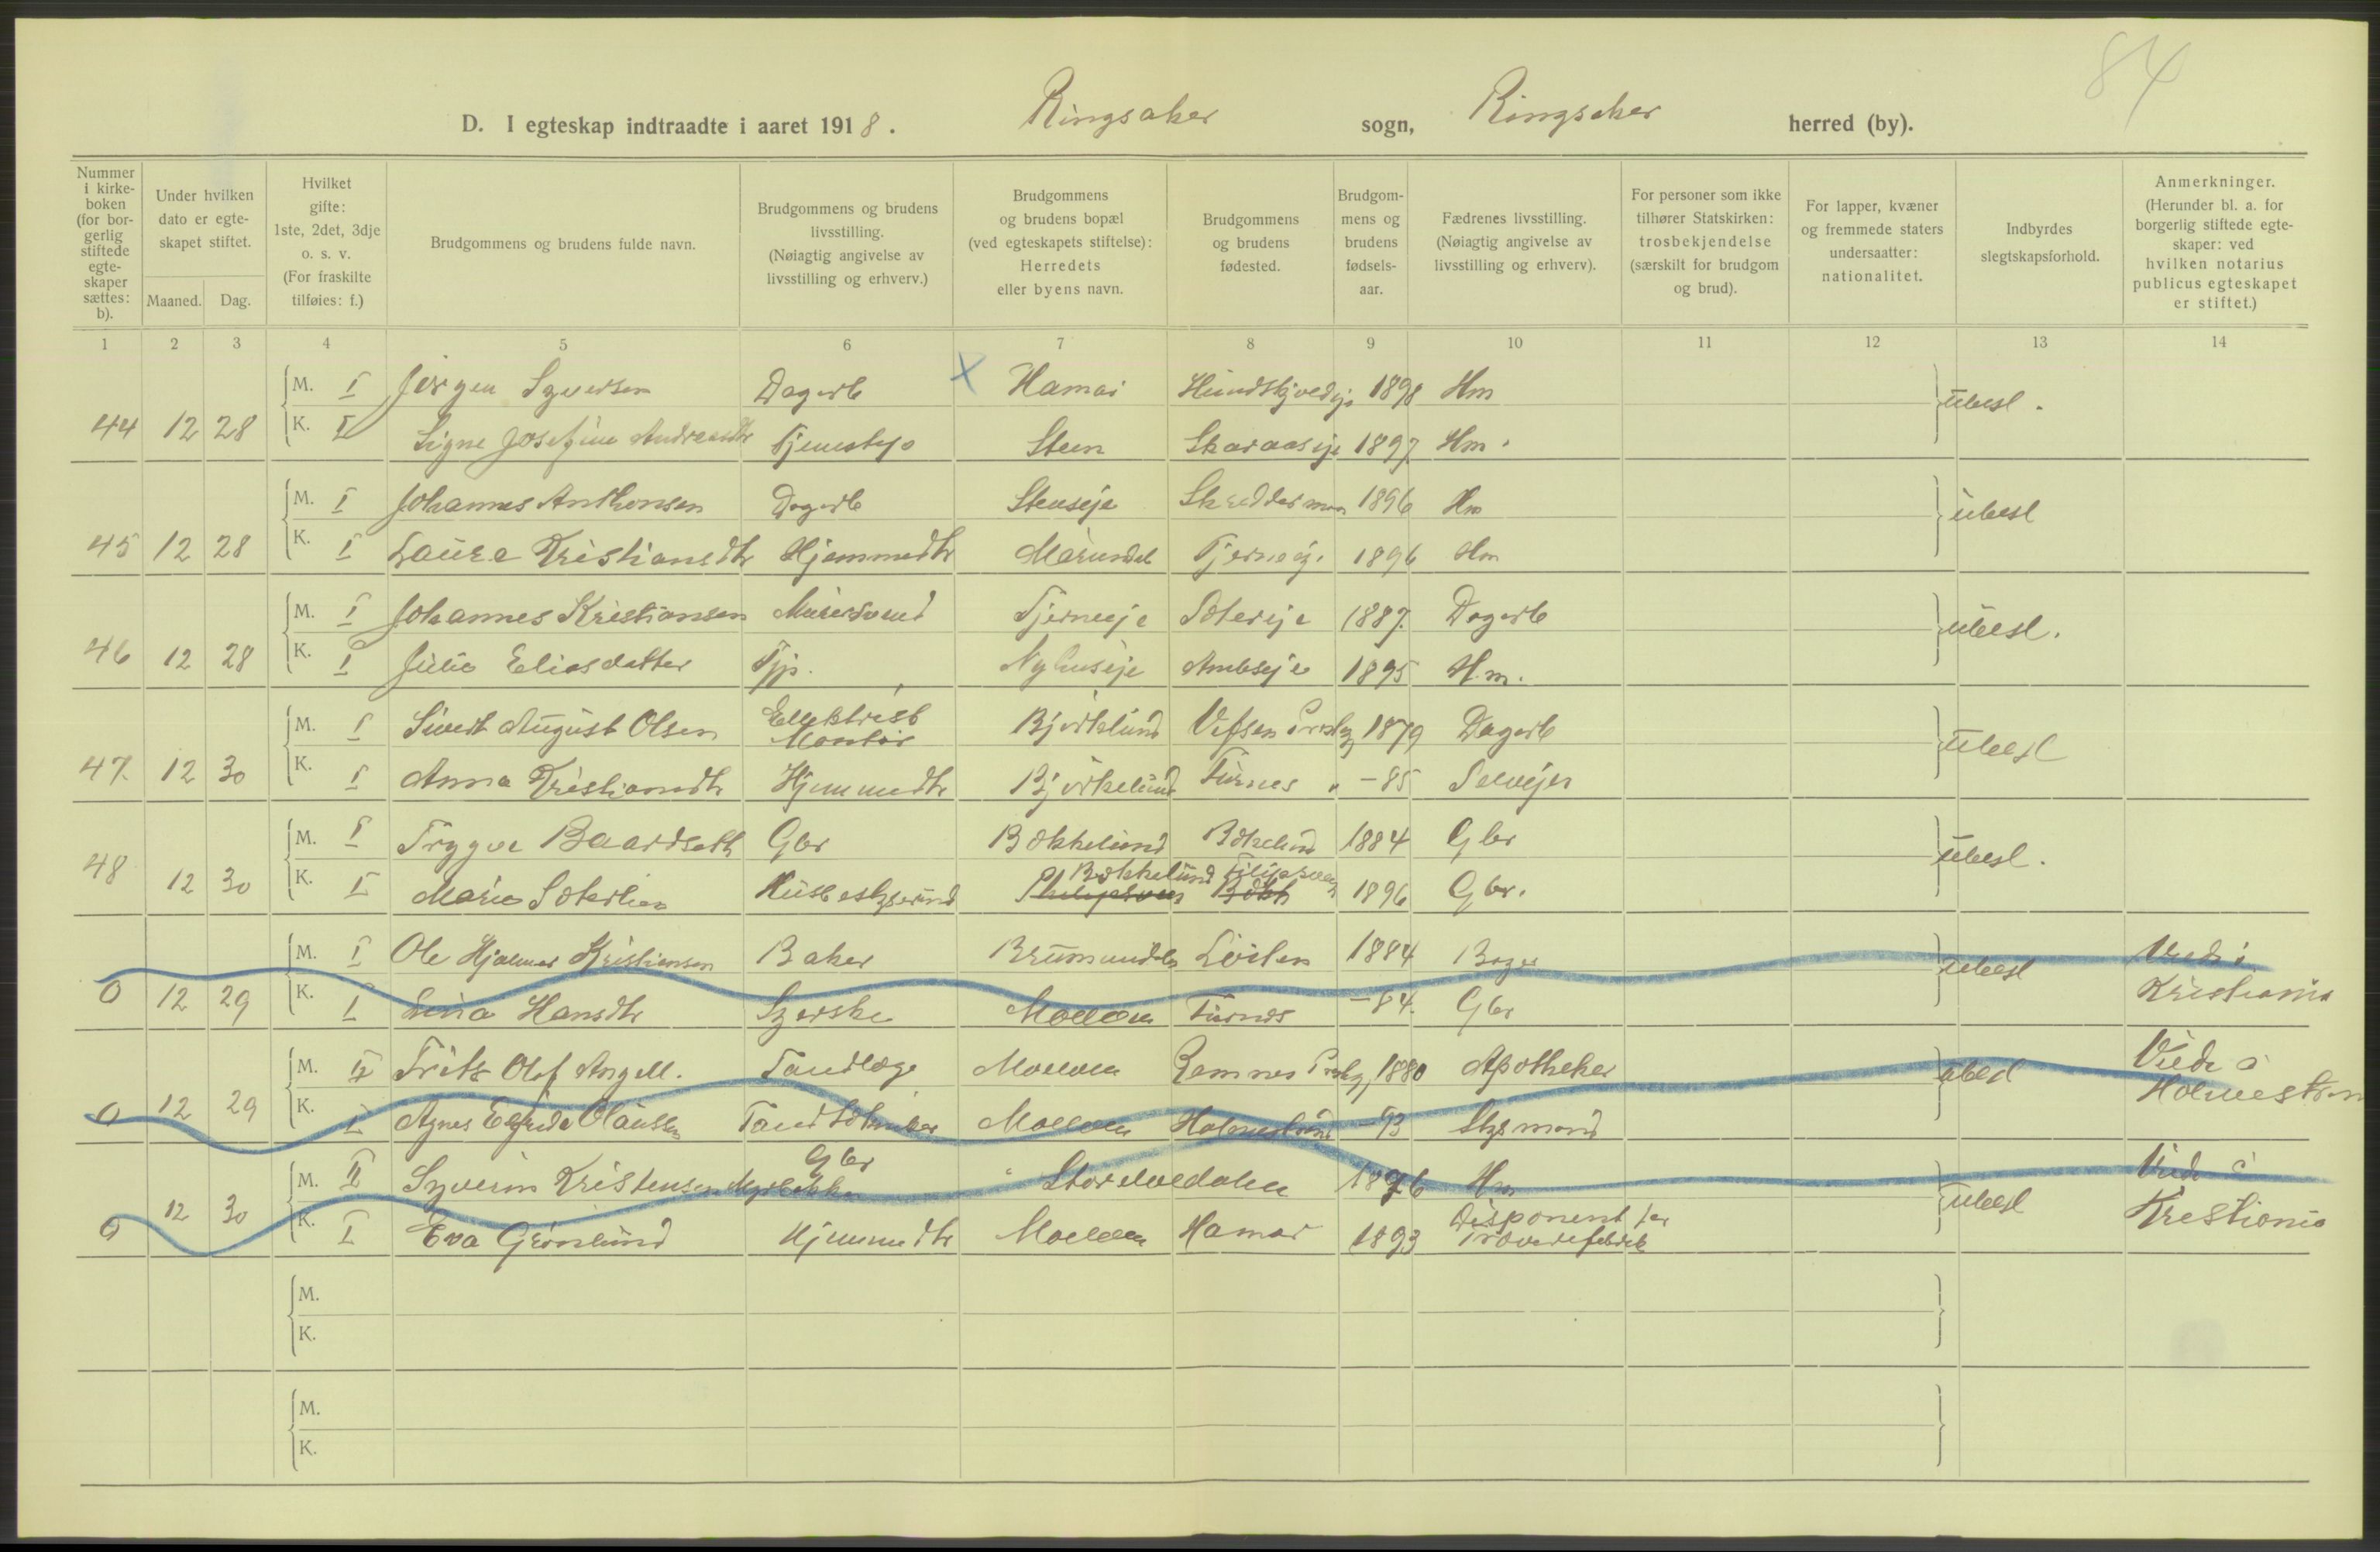 84
D. I egteskap indtraadte i aaret 1918. Ringsaker sogn, Ringsaker herred (by).
Nummer i kirke-boken (for bor-gerlig stiftede egte-skaper sættes: b).
Under hvilken dato er egte-skapet stiftet.
Maaned. Dag.
Hvilket gifte: 1ste, 2det, 3dje o. s. v. (For fraskilte tilføies: f.)
Brudgommens og brudens fulde navn.
Brudgommens og brudens livsstilling. (Nøiagtig angivelse av livsstilling og erhverv.)
Brudgommens og brudens bopæl (ved egteskapets stiftelse): Herredets eller byens navn.
Brudgommens og brudens fødested.
Brudgom-mens og brudens fødsels-aar.
Fædrenes livsstilling. (Nøiagtig angivelse av livsstilling og erhverv).
For personer som ikke tilhører Statskirken: trosbekjendelse (særskilt for brudgom og brud).
For lapper, kvæner og fremmede staters undersaatter: nationalitet.
Indbyrdes slegtskapsforhold.
Anmerkninger. (Herunder bl. a. for borgerlig stiftede egte-skaper: ved hvilken notarius publicus egteskapet er stiftet.)
1 2 3 4 5 6 7 8 9 10 11 12 13 14
M. I Jørgen Syversen Dagarb X Hamar 1898 Hm
44 12 28 K. I Signe Josefine Andreasdtr Tjenestepi Steen Skaraaseje 1897 Hm. ubesl.
M. I Johannes Anthonsen Dagarb Stenseje Skreddermoen 1896 Hm
45 12 28 K. I Laura Kristiansdtr Hjemmedtr Tjerneej. 1896 Hm ubesl
M. I Johannes Kristiansen Murersvend Tjerneeje Sætereje 1887. Dagarb
46 12 28 K. I Julie Eliasdatter Tjp. Nyhuseje 1895 H.m. ubesl.
M. I Sivert August Olsen Ellektrisk Montør Bjørkelund Vefsen 1879 Dagarb
47. 12 30 K. I Anna Kristiansdtr Hjemmedtr Bjørkelund Furnes " -85 Selvejer ubesl
M. I Trygve Baardseth Gbr Bækkelund Bækelund 1884 Gbr
48 12 30 K. I Marie Sæterlien Husbestyrerinde Bækkelund Filipsveen 1896 Gbr. ubesl.
M. I Ole Hjalmar Kristiansen Baker Brumunddalen Løiten 1884 Bager
0 12 29 K. I Lina Hansdtr Syerske Moelven Furnes -84. Gbr ubesl Viede i Kristiania
M. II Frits Olaf Angell. Tandlæge Moelven 1880 Apotheker
0 12 29 K. I Agnes Elfrida Olausen Tandtekniker Moelven Holmestrand -93 Skysmand ubesl Viede i Holmestrand
M. II Syverin Kristensen Myrbækken Gbr Storelvedalen 1876 Hm
0 12 30 K. I Eva Grønlund Hjemmedtr Moelven Hamar 1893 Disponent for Trævarefabrik ubesl Viede i Kristiania
M.
K.
M.
K.